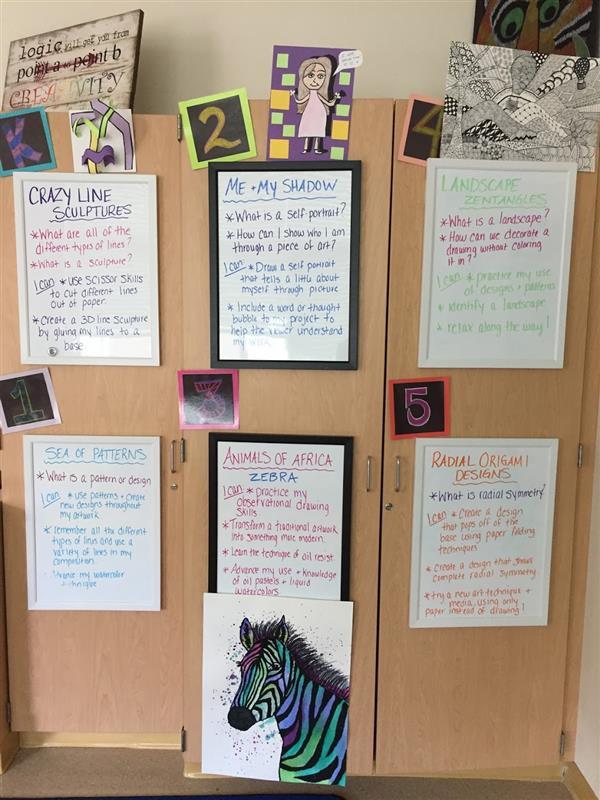 logic will get you from
point a to point b
CREATIVITY
K
2
4
CRAZY LINE
SCULPTURES
* What are all of the
different types of lines?
* What is a sculpture?
I can * Use scissor skills
to cut different lines
out of paper.
* Create a 3D line sculpture
by gluing my lines to a
base.
ME + MY SHADOW
* What is a self-portrait?
* How can I show who I am
through a piece of art?
I can * Draw a self portrait
that tells a little about
myself through picture
* Include a word or thought
bubble to my project to
help the viewer understand
my work
LANDSCAPE
ZENTANGLES
* What is a landscape?
* How can we decorate a
drawing without coloring
it in?
I can * practice my use
of designs + patterns
* identify a landscape
* relax along the way!
1
3
5
SEA OF PATTERNS
* What is a pattern or design
I can * use patterns + create
new designs throughout
my artwork
* remember all the different
types of lines and use a
variety of lines in my
composition
advance my watercolor
technique
ANIMALS OF AFRICA
ZEBRA
I can * practice my
observational drawing
skills
* Transform a traditional artwork
into something more modern.
* Learn the technique of oil resist
* Advance my use + knowledge
of oil pastels + liquid
watercolors
RADIAL ORIGAMI
DESIGNS
* What is radial symmetry?
I can * Create a design
that pops off of the
base using paper folding
techniques
* Create a design that shows
complete radial symmetry
* try a new art technique +
media, using only
paper instead of drawing!